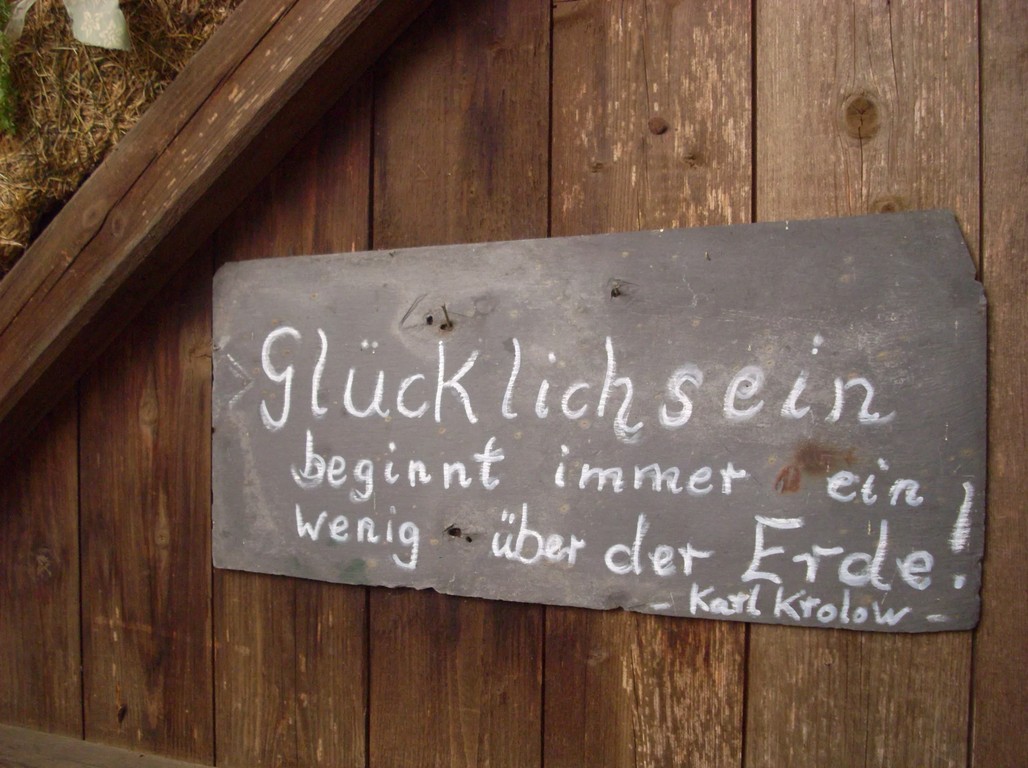 Glücklichsein
beginnt immer ein
wenig über der Erde!
- Karl Krolow -